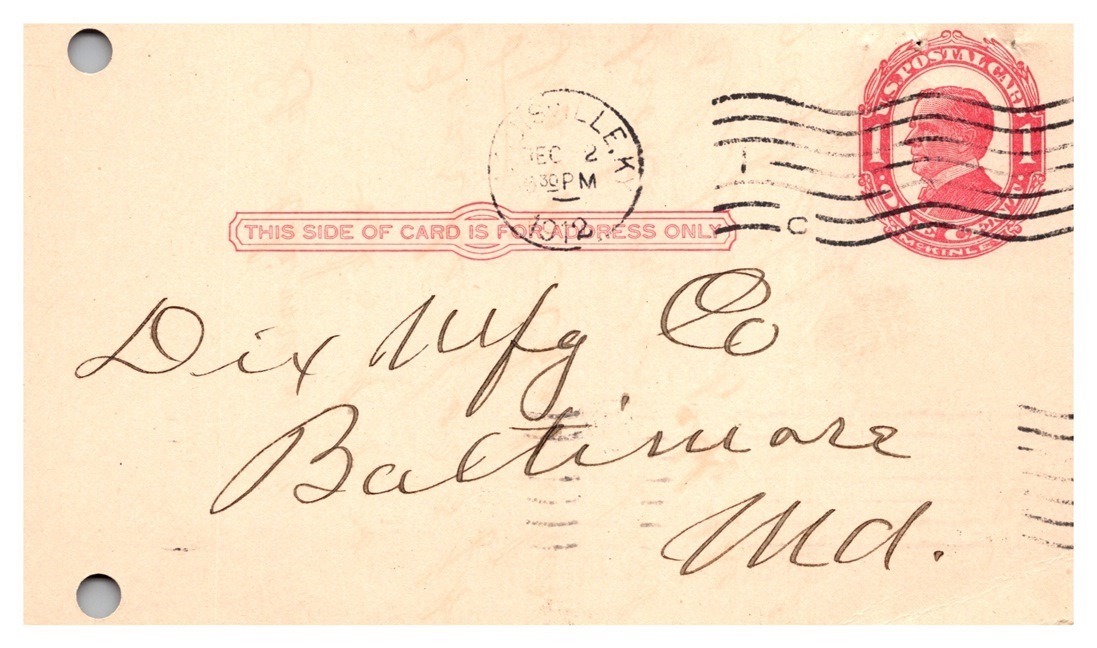 U.S. POSTAL CARD
1 1
ONE CENT
McKINLEY
DEC 2
30 PM
1912
1
C
THIS SIDE OF CARD IS FOR ADDRESS ONLY
Dix Mfg Co
Baltimore
Md.